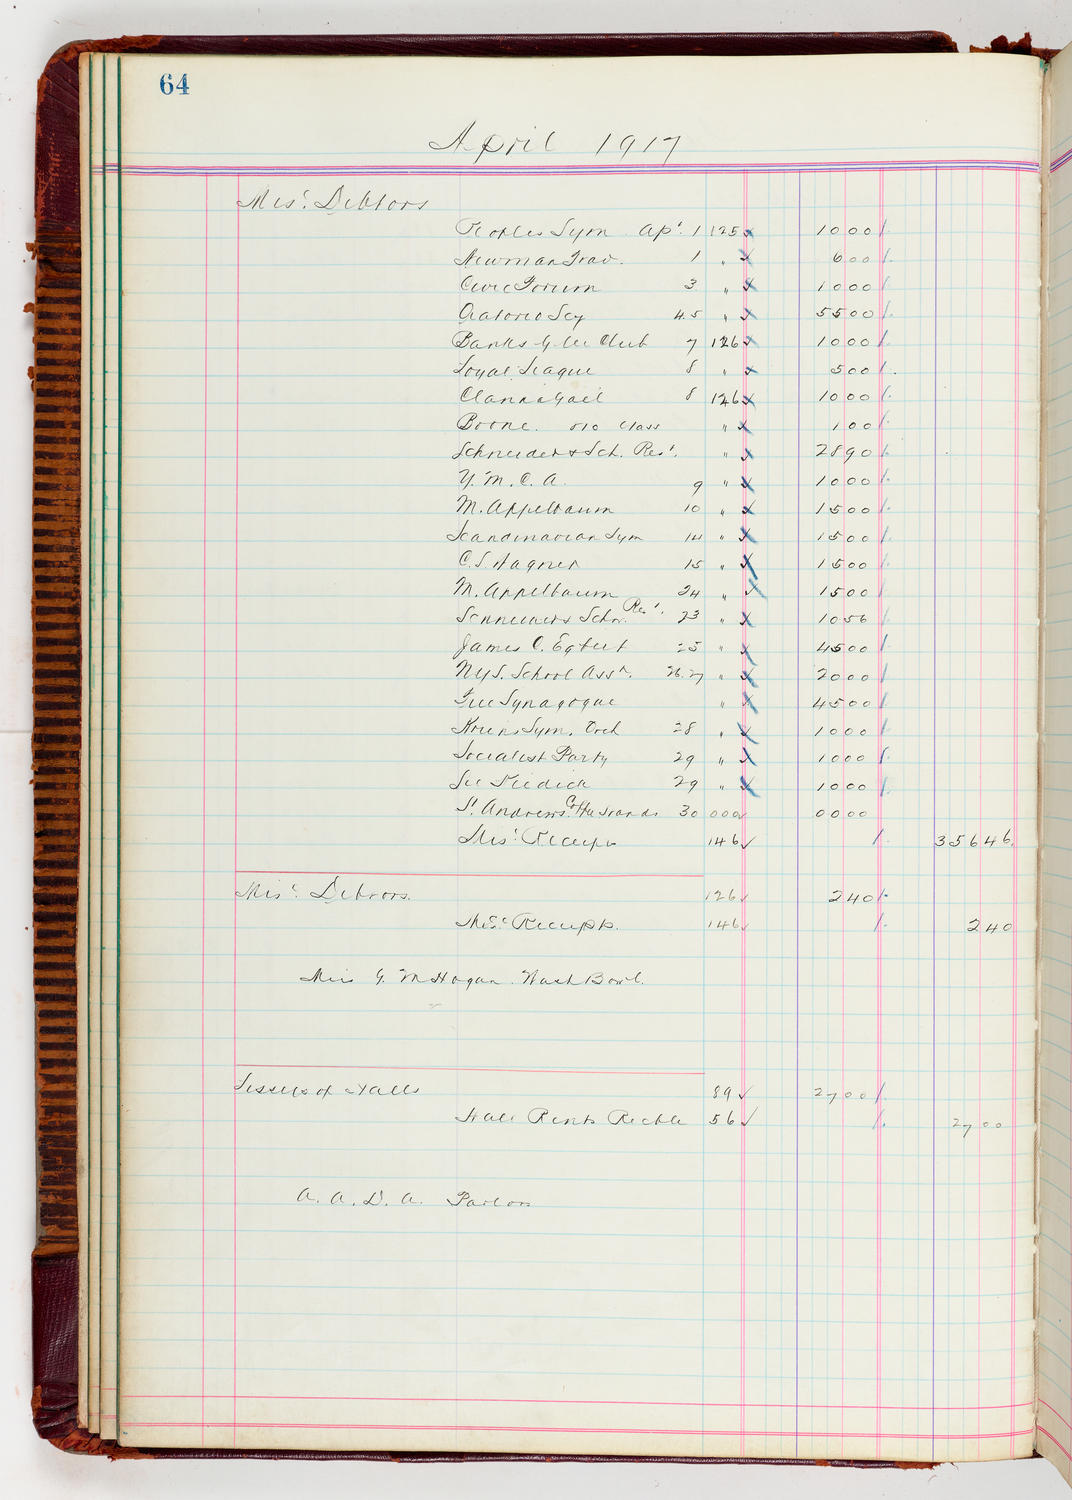 64
April 1917
Misc. Debtors
Peoples Sym Apr. 1 125 1000
Newman Trav. 1 " 600
Civic Forum 3 " 1000
Oratorio Scy 4.5 " 5500
Banks Glee Club 7 126 1000
Loyal League 8 " 500
Clan na Gael 8 126 1000
Boone. Class " 100
Schneider & Sch. Rest. " 2890
Y. M. C. A. 9 " 1000
M. Appelbaum 10 " 1500
Scandinavian Sym 14 " 1500
C. S Wagner 15 " 1500
M. Appelbaum 24 " 1500
Schneider & Schn. Rest. 23 " 1056
James C. Egbert 25 " 4500
N.Y.S. School Assn. 26.27 " 2000
Free Synagogue " 4500
Sym. Orch 28 " 1000
Socialist Party 29 " 1000
29 " 1000
St. Andrews 30 000 0000
Misc. Receipts 146 35646
Misc. Debtors. 126 240
Misc. Receipts. 146 240
Miss G. M Hogan. Wash Bowl.
Lessees of Halls 89 2700
Hall Rents Rectble 56 2700
A. A. D. A. Parlors